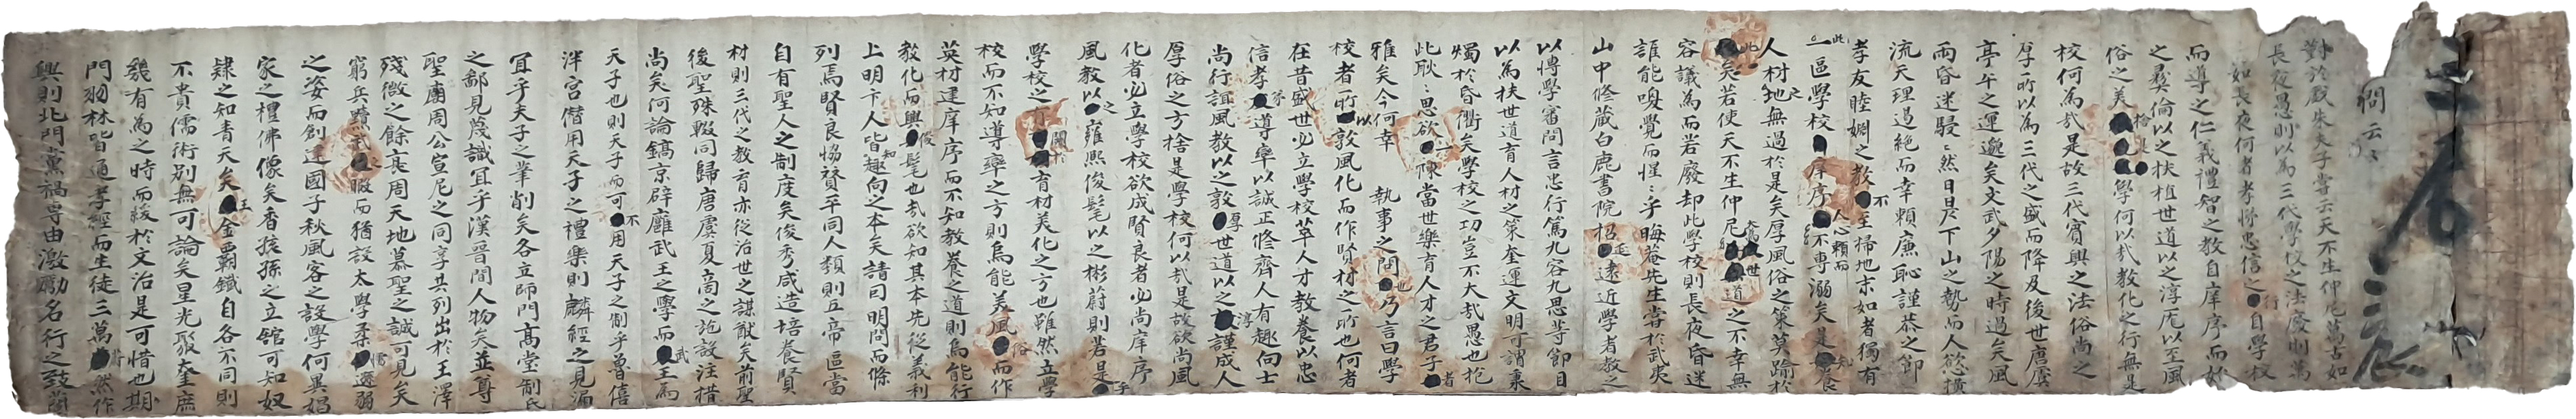 問云云
對於戱朱夫子嘗云天不生仲尼萬古如
長夜愚則以爲三代學校之法廢則爲
如長夜何者孝悌忠信之行自學校
而導之仁義禮智之教自庠序而
之彛倫以之扶植世道以之淳厖以至風
俗之美學何以哉教化之行無是
校何爲哉是故三代賓興之法俗尚之
厚所以爲三代之盛而降及後世唐虞
亭午之運邈矣文武夕陽之時過矣風
雨昏迷駸駸然日昃下山之勢而人慾橫
流天理過絶而幸賴廉恥謹恭之節
孝友睦婣之教不至掃地末如者獨有
此一區學校庠序人心賴而不專溺矣是
人材地無過於是矣厚風俗之策莫踰於
此矣若使天不生仲尼世道之不幸無
容議爲而若廢却此學校則長夜昏迷
誰能喚覺而惺惺乎晦菴先生嘗於武夷
山中修蔵白鹿書院招延遠近學者教之
以愽學審問言忠行篤九容九思等節目
以爲扶世道育人材之策奎運文明可謂秉
燭於昏衢矣學校之功豈不大哉愚也抱
此耿耿思欲一陳當世樂育人才之君子者
雅矣今何幸執事之問也乃言曰學
校者所以敦風化而作賢材之所也何者
在昔盛世必立學校萃人才教養以忠
信孝導率以誠正修齊人有趣向士
尚行誼風教以之敦厚世道以之淳謹成人
厚俗之方捨是學校何以哉是故欲尚風
化者必立學校欲成賢良者必尚庠序
風教以之雍熙俊髦以之彬蔚則若是乎
學校之關於育材美化之方也雖然立學
校而不知導率之方則烏能美風俗而作
英材建庠序而不知教養之道則烏能行
教化而興俊髦也哉欲知其本先從義利
上明卞人皆知趣向之本矣請曰明問而條
列焉賢良協贊平同人類則五帝區當
自有聖人之制度矣俊秀咸造培養賢
材則三代之教育亦從治世之謀猷矣前聖
後聖殊轍同歸唐虞夏啇之施設注措
尚矣何論鎬京辟廱武王之學而武王爲
天子也則天子而可不用天子之制乎魯僖
泮宮僭用天子之禮樂則麟經之見漏
宜乎夫子之筆削矣各立師門高堂制氏
之鄙見蔑識宜乎漢晉間人物矣並尊
聖廟周公宣尼之同享共列出於王澤
殘微之餘哀周天地慕聖之誠可見矣
窮兵黷武之暇而猶設太學柔懦遜弱
之姿而創建國子秋風客之設學何異娼
家之禮佛像矣香孩孫之立舘可知奴
隸之知青天矣王金覇鐵自各不同則
不貴儒術别無可論矣星光聚奎庶
幾有爲之時而緩於文治是可惜也期
門羽林皆通孝經而生徒三萬皆然作
興則北門黨禍専由激勵名行之致